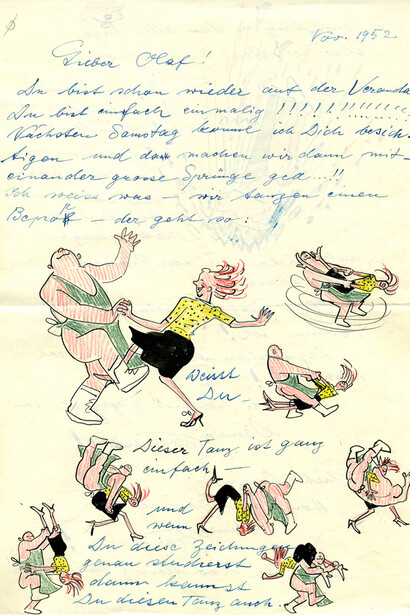 Nov. 1952
Lieber Olaf!
Du bist schon wieder auf der Veranda
Du bist einfach einmalig !!!!!!!!!!!!
Nächsten Samstag komme ich Dich besich-
tigen und dann machen wir dann mit-
einander grosse Sprünge gell...!!
Ich weiss was – wir tanzen einen
– der geht so :
Weisst
Du –
Dieser Tanz ist ganz
einfach –
und
wenn
Du diese Zeichnungen
genau studierst
dann kannst
Du diesen Tanz auch.